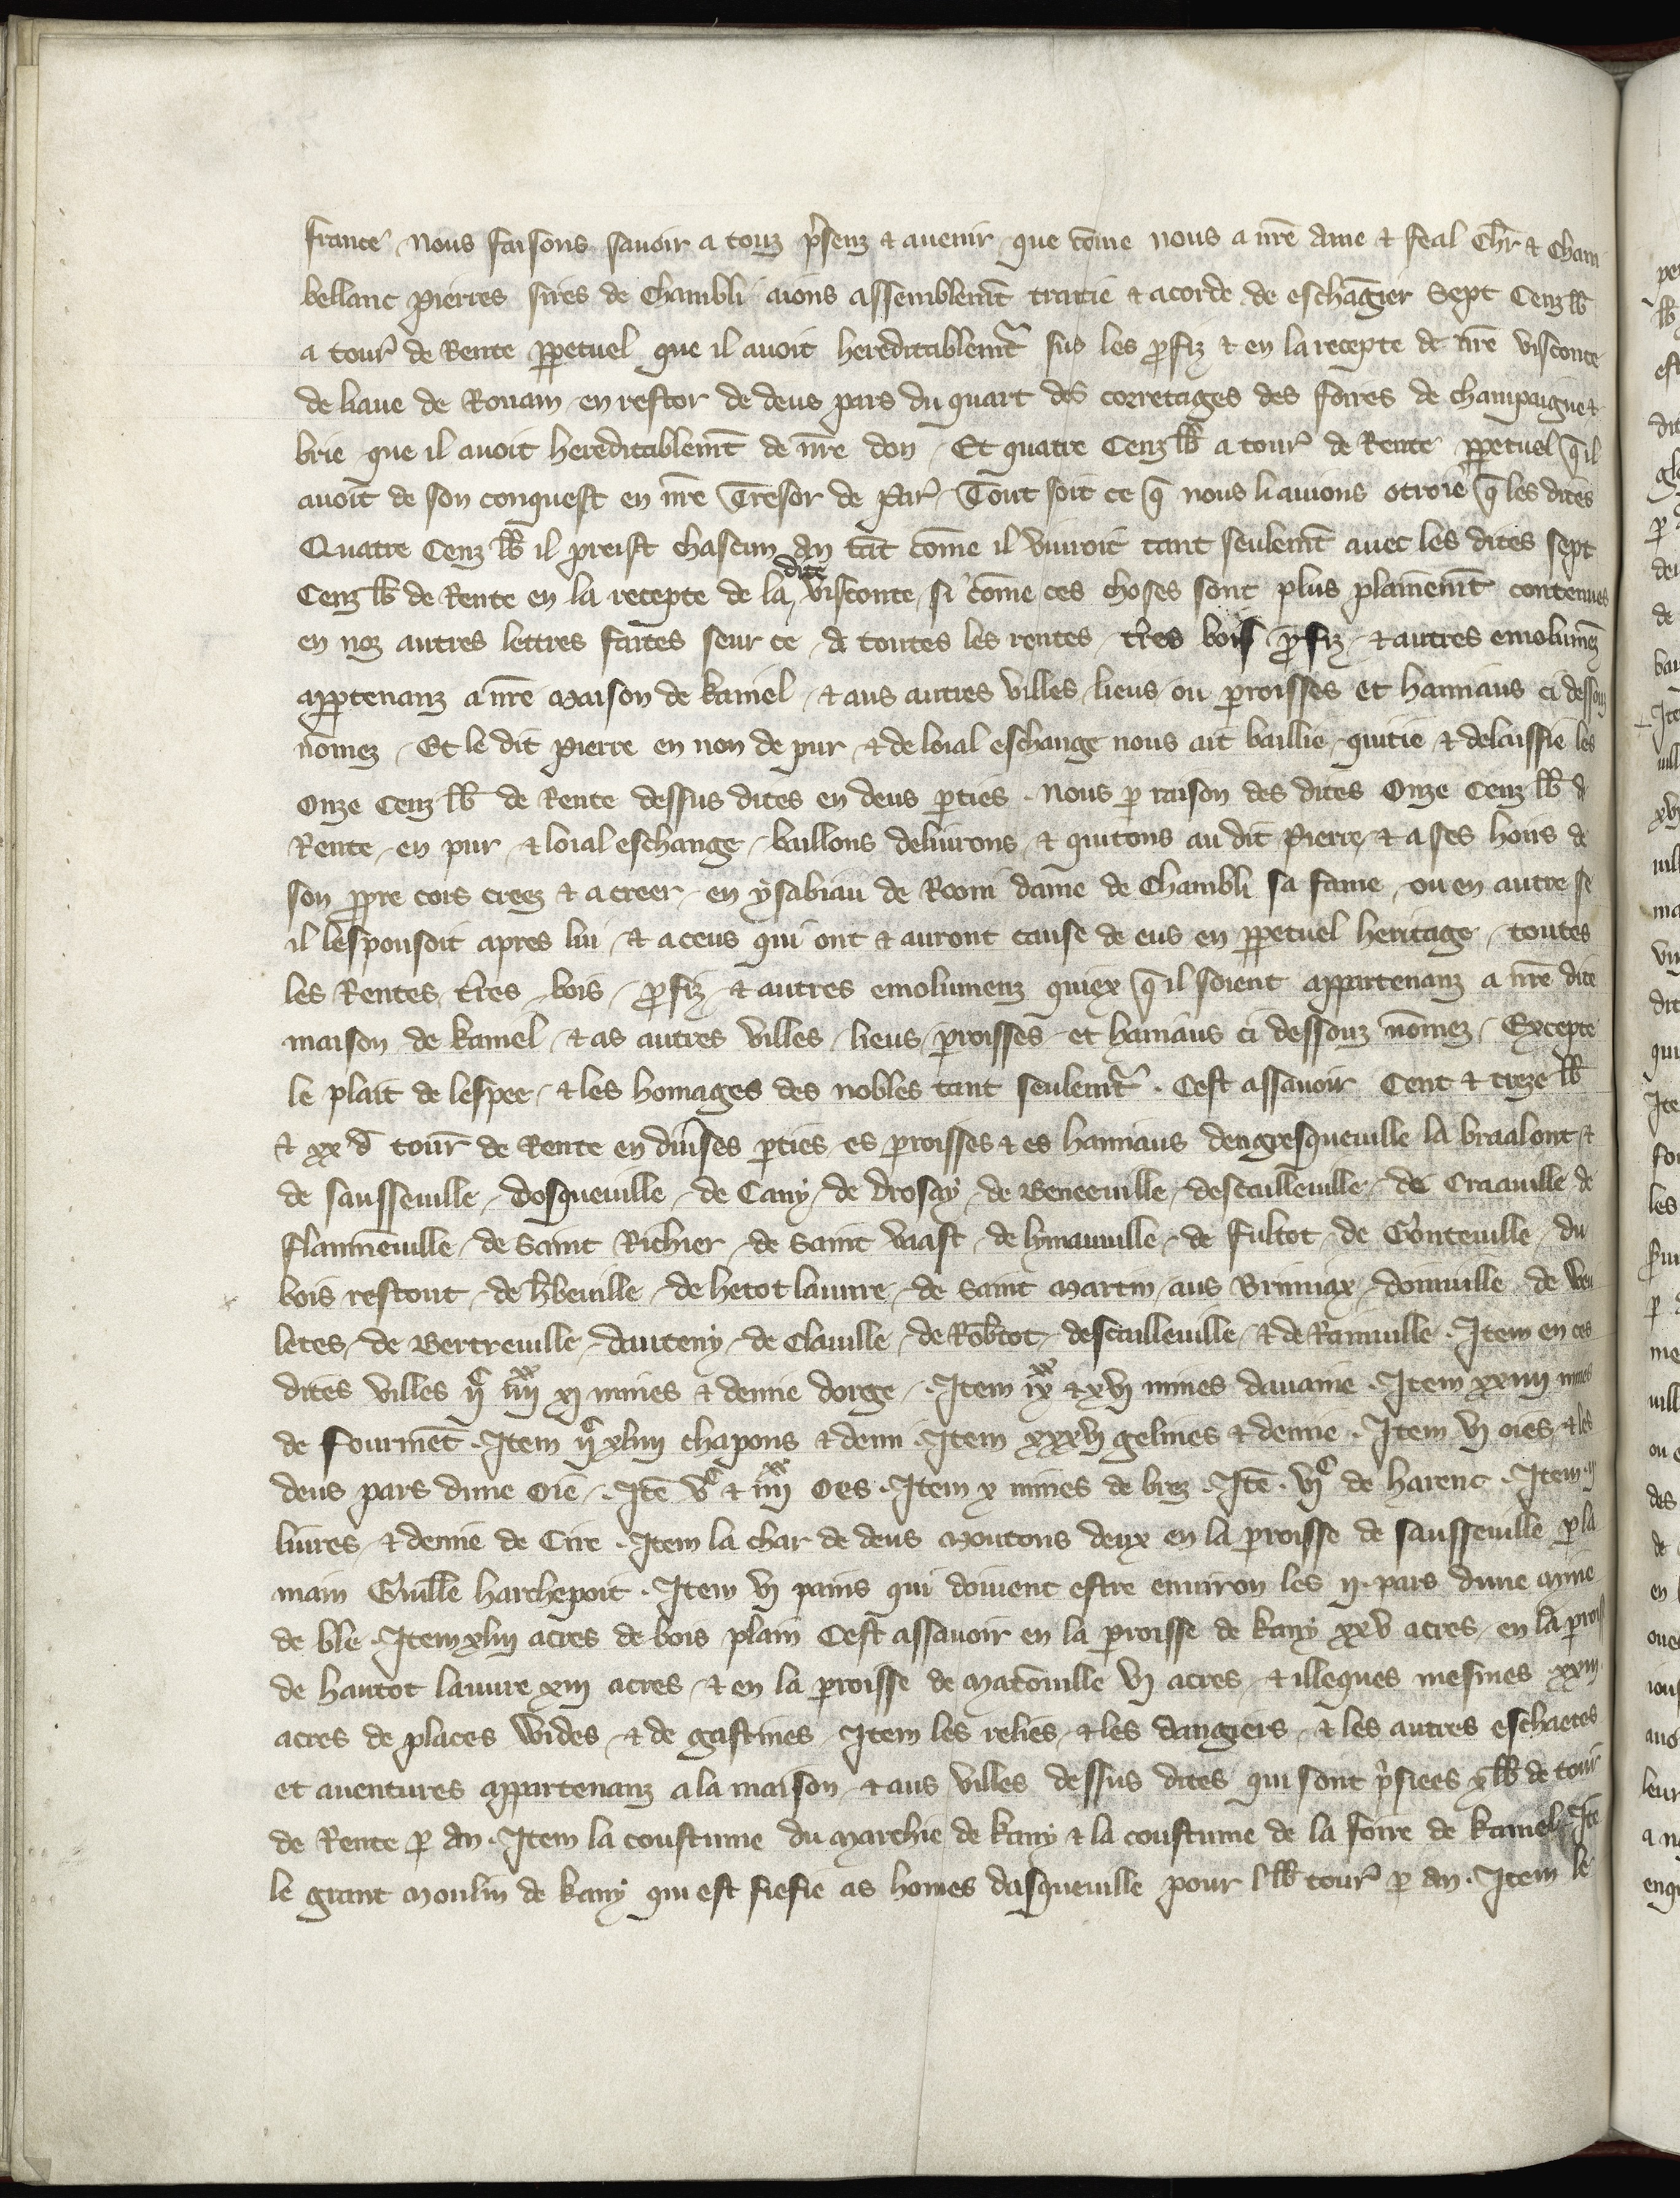 france nous faisons sauoir a touz p̃senz & auenir que cōme nous a nr̃e ame & feal Chr̃ & Cham
bellanc pierres sires de Chambli aions assemblemt̃ traitie & acorde de eschāgier Sept Cenz lb̃
a tour̃ de Rente ꝑpetuel que il auoit hereditablemt̃ sus les ꝓfiz & en la recepte de nr̃e visconte
de liaue de Rouain en restor de deus pars du quart des corretages des foires de champaigne &
brie que il auoit hereditablemt̃ de nr̃e don Et quatre Cenz lb̃ a tour̃ de Rente ꝑpetuel q̃ il
auoit de son conquest en nr̃e Tresor de Par̃ Tout soit ce q̃ nous li auions otroie q̃ les dites
Quatre Cenz lb̃ il preist chascun an tāt cōme il viuroit tant seulemt̃ auec les dites sept
Cenz lb̃ de Rente en la recepte de la dite visconte si cōme ces choses sont plus plainemt̃ contenues
en noz autres lettres faites seur ce a toutes les rentes tr̃es bois ꝓfiz & autres emolumēz
apꝑtenanz a nr̃e maison de kaniel & aus autres villes lieus ou ꝑroisses et hamiaus ci dessouz
nōmez Et le dit pierre en non de pur & de loial eschange nous ait baillie quitie & delaissie les
Onze Cenz lb̃ de Rente dessus dites en deus ꝑties nous ꝑ raison des dites Onze Cenz lb̃ d
Rente en pur & loial eschange baillons deliurons & quitons au dit Pierre & a ses hoirs de
son ꝓpre cors creez & a creer en ysabiau de Rooni dame de Chambli sa fame ou en autre se
il lespousoit apres lui & a ceus qui ont & auront cause de eus en ꝑpetuel heritage toutes
les Rentes tr̃es bois ꝓfiz & autres emolumenz quiex q̃ il soient appartenanz a nr̃e dite
maison de kaniel & as autres villes lieus ꝑroisses et hamiaus ci dessouz nōmez Excepte
le plait de lespee & les homages des nobles tant seulemt̃ Cest assauoir Cent & treze lb̃
& xx d̃ tour̃ de Rente en diuses ꝑties es ꝑroisses & es hamiaus dengresqueuille la braalont &
de sausseuille dosqueuille de Cany de drosay de Beneeuille descalleuille de Criauille de
flamēuille de Saint Richier de Saint vaast de lymauuille de fultot de Gonteuille du
bois restout de hb̃euille de hetot lauure de Saint Martin aus Bruniax donuille de veu
letes de Bertreuille dauteny de Clauille de Rob̃tot descailleuille & de Rainuille Item en ces
dites villes ij^c iiij^xx xj mines & demie dorge Item ix^xx & xvj mines dauaine Item xxiiij mines
de fourmēt Item ij^c xliij chapons & demi Item xxxvj gelines & demie Item vj oies & les
deus pars dune oie Itē v^c & iiij^xx oes Item x mines de brez Itē vj^c de harenc Item ij
liures & demie de Cire Item la char de deus moutons deux en la ꝑroisse de sausseuille ꝑ la
main Guill̃e harchepoit Item vj pains qui doiuent estre enuiron les ij pars dune mine
de ble Item xliij acres de bois plain Cest assauoir en la ꝑroisse de kany xxv acres en la ꝑroiss
de hautot lauure xiij acres & en la ꝑroisse de Matōuille vj acres & illeques mesmes xxiij
acres de places wides & de gastines Item les reliés & les dangiers & les autres eschaetes
et auentures appartenanz a la maison & aus villes dessus dites qui sont p̃siees x lb̃ de tour
de Rente ꝑ an Item la coustume du marchie de kany & la coustume de la foire de kaniel Ite
le grant moulin de kany qui est fiefie as homes dasqueuille pour l lb̃ tour̃ ꝑ an Item le